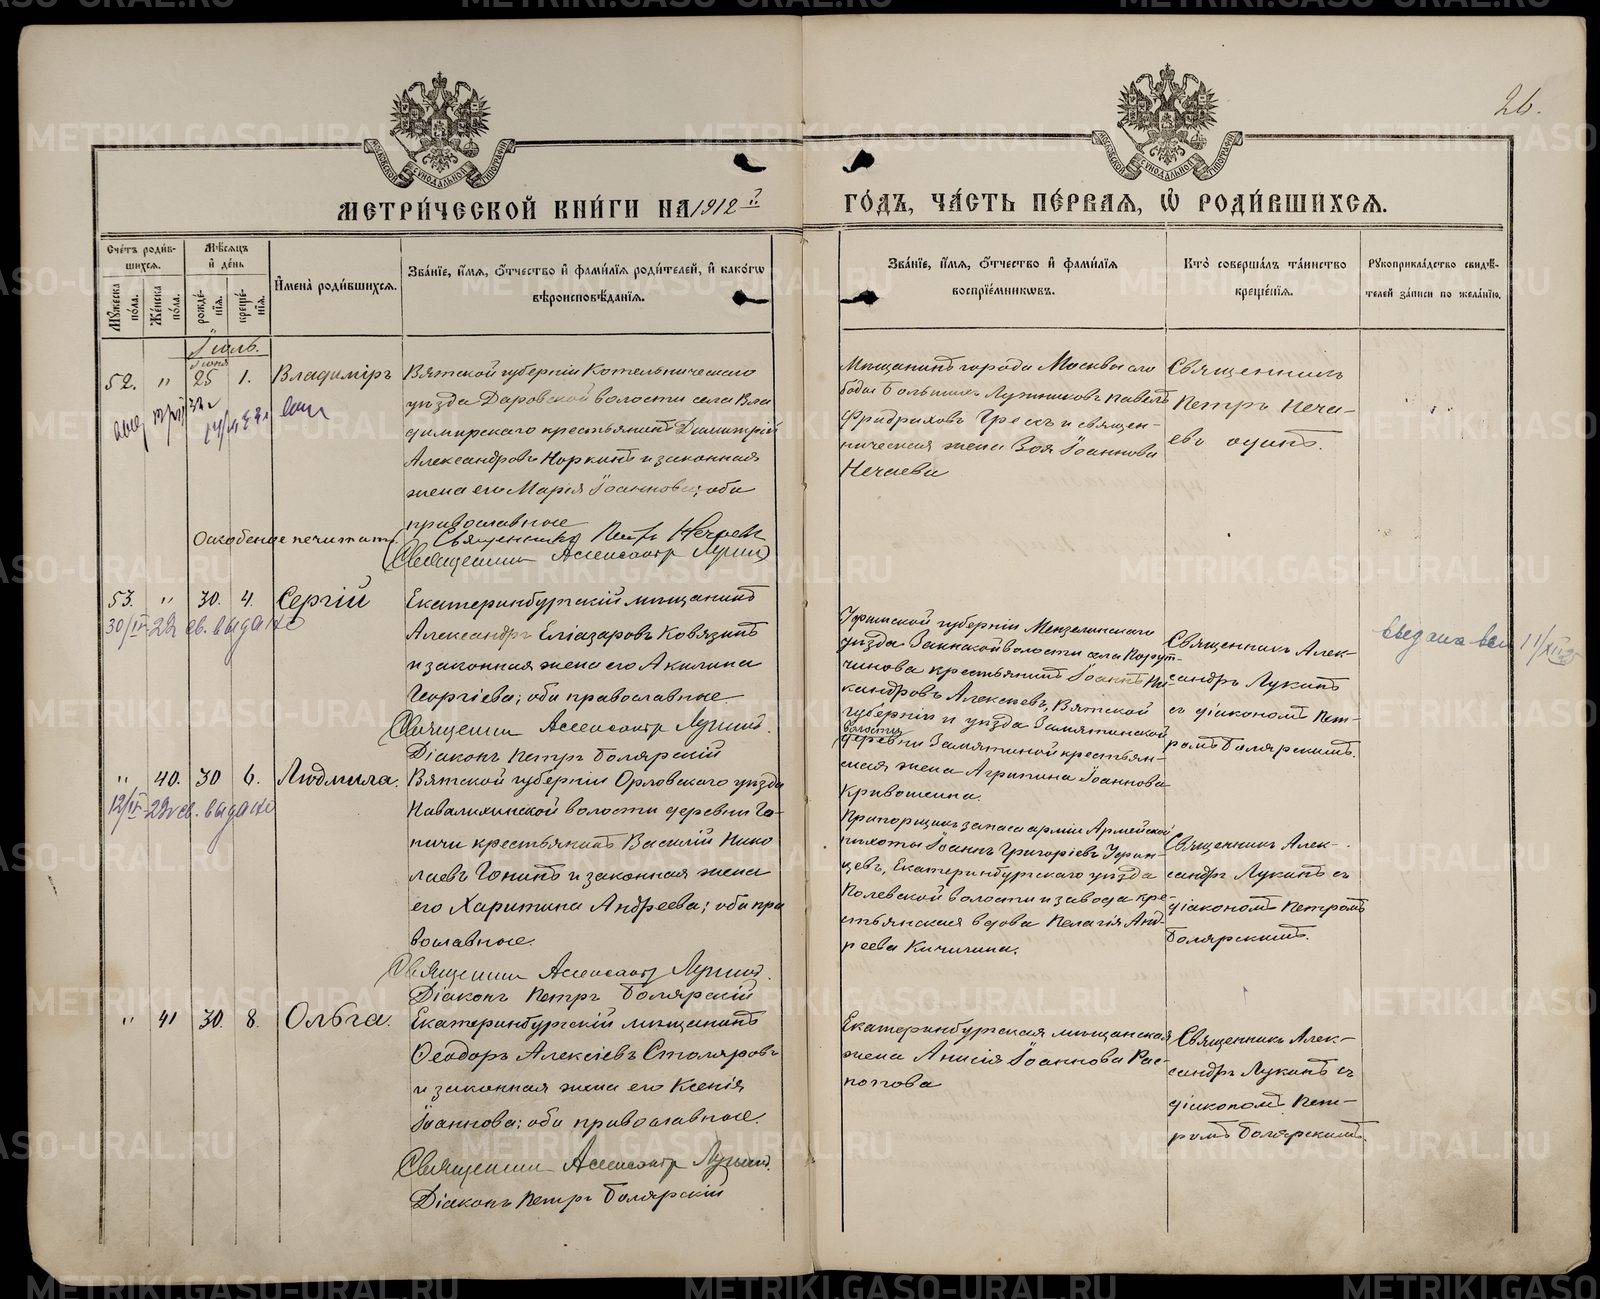 26.
МЕТРИ́ЧЕСКОЙ КНИ́ГИ НА 1912 й
ГО́ДЪ, ЧА́СТЬ ПЕ́РВАЯ, Ѡ҆ РОДИ́ВШИХСЯ.
Сче́тъ роди́в-
шихся.
Мѣ́сяцъ
и҆ де́нь
И҆мена̀ роди́вшихся.
Зва́нїе, и҆́мя, ѻ҆́тчество и҆ фами́лїя роди́телей, и҆ како́гѡ
вѣроисповѣ́данїя.
Мꙋ́жеска по́ла.
Же́нска по́ла.
рожде́-нїѧ.
креще́-нїѧ.
Зва́нїе, и҆́мя, ѻ҆́тчество и҆ фами́лїя
воспрїе́мникѡвъ.
Кто̀ соверша́лъ та́инство
креще́нїя.
Рꙋкоприкла́дство свидѣ́-
телей за́писи по жела́нїю.
Іюль.
Іюня
52. " 25 1. Владиміръ
Вятской губерніи Котельническаго
уѣзда Даровской волости села Вла
димирскаго крестьянинъ Димитрій
Александровъ Норкинъ и законная
жена его Марія Іоаннова; оба
православные
Священникъ Петръ Нечаевъ
Священникъ Александръ Лукинъ
Мѣщанинъ города Москвы сло
боды Большихъ Лужниковъ Павелъ
Фридриховъ Грессъ и священ-
ническая жена Зоя Іоаннова
Нечаева
Священникъ
Петръ Неча-
евъ одинъ.
53. " 30. 4. Сергій
30/IV-22 св. выдано
Екатеринбургскій мѣщанинъ
Александръ Еліазаровъ Ковязинъ
и законная жена его Акилина
Георгіева; оба православные
Священникъ Александръ Лукинъ.
Діаконъ Петръ Болярскій
Уфимской губерніи Мензелинскаго
уѣзда Заинской волости села
крестьянинъ Іоаннъ Ни-
кандровъ Алексѣевъ, Вятской
губерніи и уѣзда Замятинской
волости
деревни Замятиной крестьян-
ская жена Агрипина Іоаннова
Кривошеина.
Священникъ Алек-
сандръ Лукинъ
съ діакономъ Пет-
ромъ Болярскимъ.
" 40. 30 6. Людмила.
12/IV-22 св. выдано
Вятской губерніи Орловскаго уѣзда
волости деревни Го-
ничи крестьянинъ Василій Нико
лаевъ Гонинъ и законная жена
его Харитина Андреева; оба пра
вославные.
Священникъ Александръ Лукинъ.
Діаконъ Петръ Болярскій
Прапорщикъ запаса арміи Армейской
пѣхоты Іоаннъ Григоріевъ
Екатеринбургскаго уѣзда
Полевской волости и завода кре-
стьянская вдова Пелагія Анд-
реева Кичигина.
Священникъ Алек-
сандръ Лукинъ съ
діакономъ Петромъ
Болярскимъ.
" 41 30. 8. Ольга.
Екатеринбургскій мѣщанинъ
Ѳеодоръ Алексіевъ Столяровъ
и законная жена его Ксенія
Іоаннова; оба православные.
Священникъ Александръ Лукинъ.
Діаконъ Петръ Болярскій
Екатеринбургская мѣщанская
жена Анисія Іоаннова Рас-
попова
Священникъ Алек-
сандръ Лукинъ съ
діакономъ Пет-
ромъ Болярскимъ.
METRIKI.GASO-URAL.RU